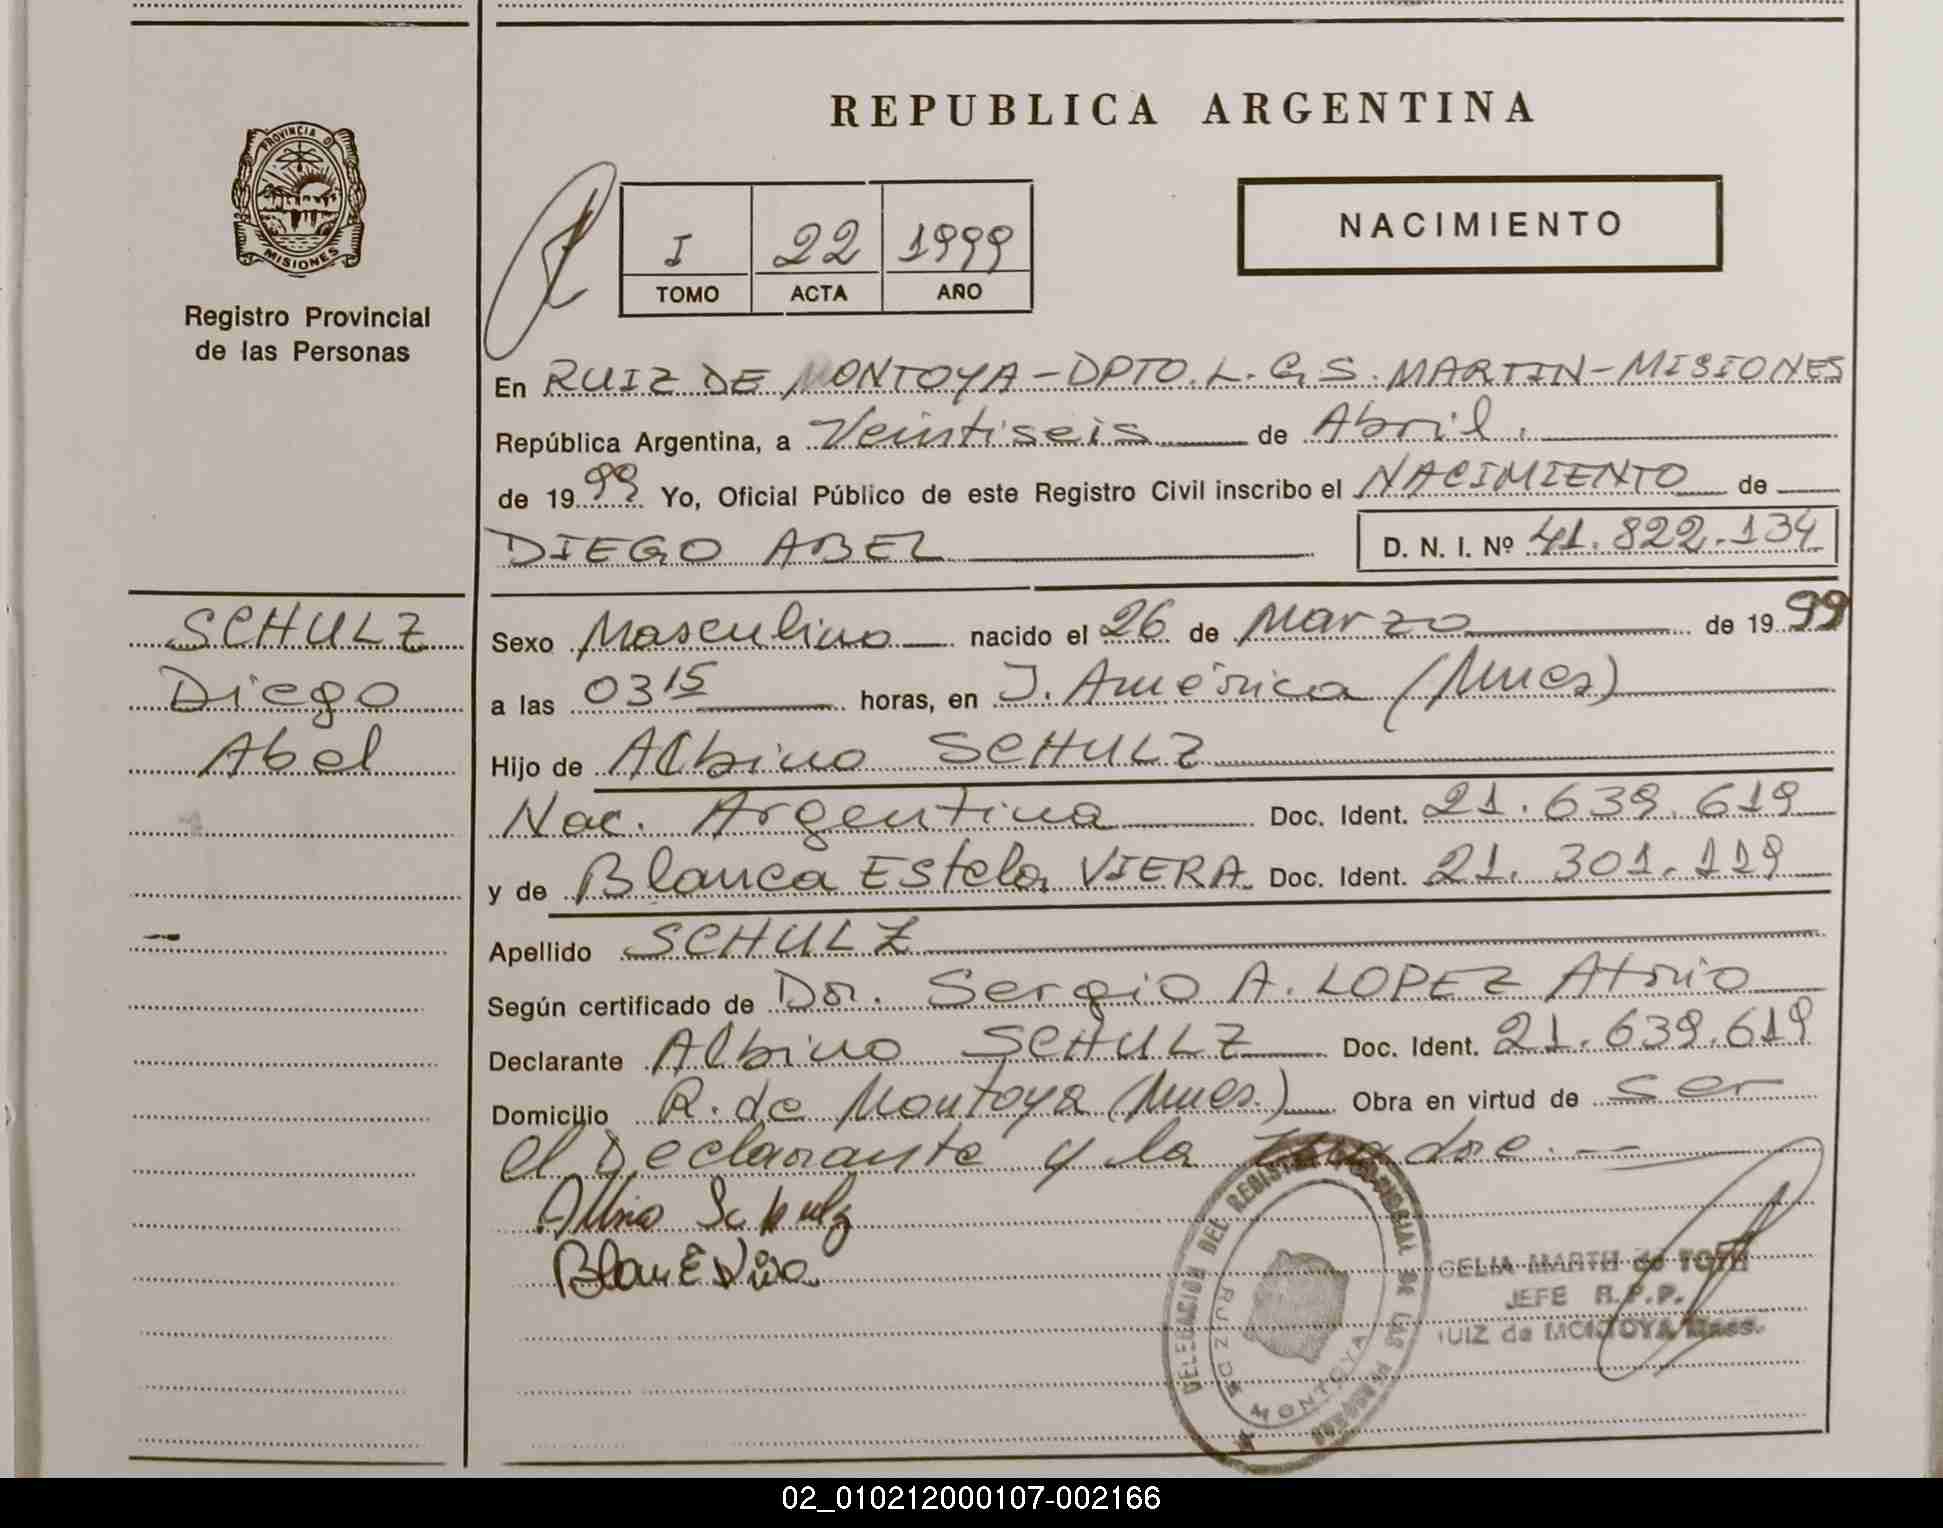 REPUBLICA ARGENTINA
PROVINCIA D
MISIONES
Registro Provincial
de las Personas
I 22 1999
TOMO ACTA AÑO
NACIMIENTO
En RUIZ DE MONTOYA-DPTO. L. G. S. MARTIN-MISIONES
República Argentina, a Veintiseis de Abril.
de 1999 Yo, Oficial Público de este Registro Civil inscribo el NACIMIENTO de
DIEGO ABEL D. N. I. Nº 41.822.134
SCHULZ
Diego
Abel
Sexo Masculino nacido el 26 de Marzo de 1999
a las 03 15 horas, en J. América (Mnes)
Hijo de Albino SCHULZ
Nac. Argentina Doc. Ident. 21.639.619
y de Blanca EStela VIERA Doc. Ident. 21.301.119
Apellido SCHULZ
Según certificado de Dr. Sergio A. LOPEZ Atrio
Declarante Albino SCHULZ Doc. Ident. 21.639.619
Domicilio R. de Montoya (Mnes.) Obra en virtud de ser
el Declarante y la madre.
Albino Schulz
Blan E Viera
DELEGACION DEL REGISTRO PROVINCIAL DE LAS PERSONAS
RUIZ DE MONTOYA
CELIA MARTH de TOTH
JEFE R.P.P.
UIZ de MONTOYA Mnes.
02_010212000107-002166